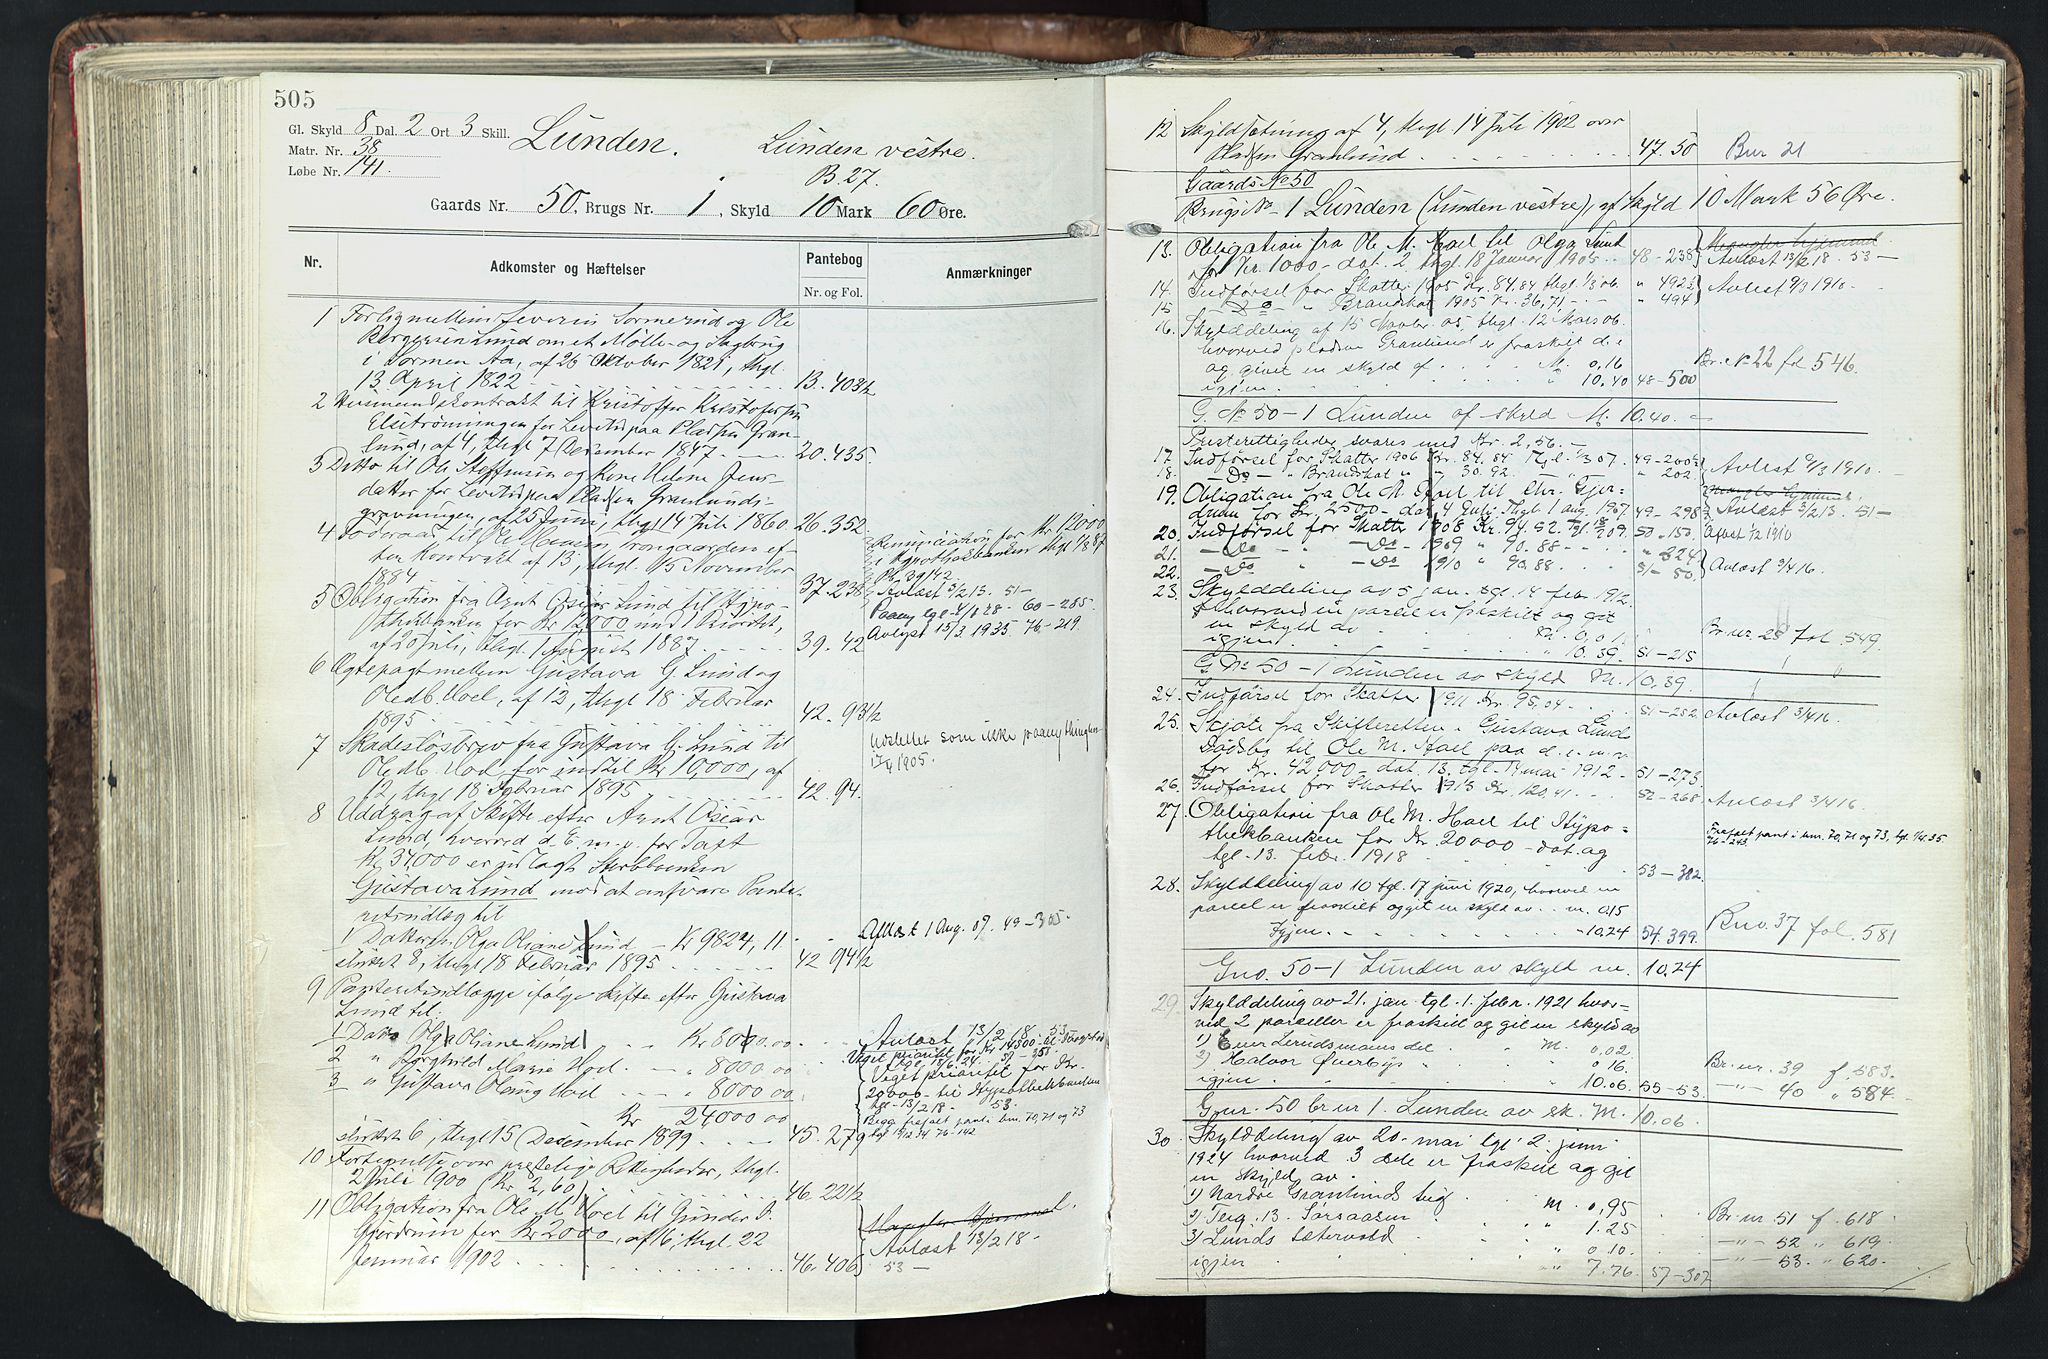 505
Gl. Skyld 8 Dal. 2 Ort 3 Skill. Lunden. Lunden vestre.
Matr. Nr. 38
Løbe Nr. 141. B. 27.
Gaards Nr. 50, Brugs Nr. 1, Skyld 10 Mark 60 Øre.
Nr. Adkomster og Hæftelser Pantebog Anmærkninger
Nr. og Fol.
1 Forlig mellem Severin Sormerud og Ole
Bergersen Lund om et Mølle- og Sagbrug
i Sormen Aa, af 26 Oktober 1821, thgl.
13 April 1822 B. 403½
2 Husmandskontrakt til Kristoffer Kristofersen
for Levetid paa Pladsen Gran-
lund, af 4, thgl 7 December 1847. 20. 435.
3 Ditto til Ole Steffensen og Kone Helene Jens-
datter for Levetid paa Pladsen Granlunds-
gravningen, af 25 Juni, thgl 14 Juli 1860. 26. 352.
4 Føderaad til Ole Hansen ef-
ter Kontrakt af 13, thgl 15 November
1884 37. 238
Renunciation for Kr 12000
i Hypothekbanken thgl 1/8 87
Pb 39 142
Avlæst 3/2 13. 51—
5 Obligation fra Arnt Oscar Lund til Hypo-
thekbanken for Kr 12000 med 1 Prioritet,
af 20 Juli, thgl. 1 August 1887. 39. 42
Paany tgl 4/1 28 - 60 - 285.
Avlyst 15/3. 1935. 76-219.
6 Ægtepagt mellem Gustava G. Lund og
Ole M. Hoel, af 12, thgl 18 Februar
1895 42. 93½
7 Skadesløsbrev fra Gustava G. Lund til
Ole M. Hoel for indtil Kr 10,000, af
12, thgl 18 Februar 1895 42. 94.
Udslettet som ikke paany thinglæst
17/4 1905.
8 Uddrag af Skifte efter Arnt Oscar
Lund, hvorved d. E. m. m. for Taxt
Kr 34,000 er udlagt Stervboenken
Gustava Lund mod at ansvare Pante-
retsudlæg til
1 Datteren Olga Oliane Lund — Kr 9824, 11
sluttet 8, thgl 18 Februar 1895 42 94½
Aflæst 1 Aug. 07. 49-305.
9 Panteretsudlægge ifølge Skifte efter Gustava
Lund til:
1 Datter Olga Oliane Lund Kr 8000.00
2 " Borghild Marie Hoel — " 8000 00
3 " Gustava Hoel — " 8000 00
Kr 24000 00
sluttet 6, thgl 15 December 1899. 45. 279
Avlæst 13/2 18 53
Veget prioritet for Kr.
20000 til Hypothekbanken
tgl. 13/2 18 - 53.
Begge frafalt pant i bnr. 70, 71 og 73
tgl 76-142
10 Fortegnelse over præstelige Rettigheder, thgl.
2 Juli 1900 (Kr 2,60) 46. 22½
11 Obligation fra Ole M Hoel til Gunder P.
Gjerdrum for Kr 2000, af 6, thgl. 22
Januar 1902 46. 406
Mangler Hjemmel.
Avlæst 13/2 18.
53 —
12 Skyldsætning af 4, thgl. 14 Juli 1902 over
Pladsen Granlund 47. 50 Bnr 21
Gaards No 50
Brugs No 1 Lunden (Lunden vestre), af skyld 10 Mark 56 Øre.
13. Obligation fra Ole M. Hoel til Olga Lund
for Kr. 1000 - dat. 2 thgl. 18 Januar 1905 48 - 238
Mangler hjemmel
Avlæst 13/2 18. 53 —
14. Indførsel for Skatter 1905 Kr. 84,84 thgl. 1/3 06. " 492
15 — Do — " Brandskat 1905 Kr. 36,71 " 494
Avlæst 9/3 1910.
16. Skylddeling af 15 Novbr. 05, thgl. 12 Mars 06.
hvorved pladsen Granlund er fraskilt d. e.
og givet en skyld af M. 0,16
igjen " 10.40 48-500
Br. No 22 fol 546.
G. No 50 - 1 Lunden af skyld M. 10,40. =
Presterettigheder svares med Kr. 2,56. —
17. Indførsel for Skatter 1906 Kr. 84,84 Tgl. 1/3 07. 49-200
18. — Do — Brandskat " " 30.92. " 202.
Avlæst 9/3 1910.
19. Obligation fra Ole M. Hoel til Chr. Gjer-
drum for Kr. 2500 - dat 4 Juli thgl. 1 aug. 1907 49 - 298
Mangler hjemmel.
Avlæst 3/2 13. 51 —
20. Indførsel for Skatter 1908 Kr. 94,82 Tgl. 18/2 09. 50-150. Aflæst 1/2 1910
21. — Do — — Do — 1909 " 90.88 " 224
22. — Do — — Do — 1910 " 90,88 51-50.
Avlæst 3/4 16.
23. Skylddeling av 5 jan. tgl. 14 febr. 1912.
hvorved en parcel er fraskilt og git
en skyld av M. 0,01.
igjen " 10.39. 51-215
Br. nr. 28 fol. 549.
G No 50 - 1 Lunden av skyld M. 10,39.
24. Indførsel for Skatter 1911 Kr. 95,04 51-252 Avlæst 3/4 16.
25. Skjøte fra Skifteretten i Gustava Lunds
Dødsbo til Ole M. Hoel paa d. e. m. m.
for Kr. 42000 - dat. 13. tgl. 14 mai 1912 - 51-273
26. Indførsel for Skatter 1913 Kr. 120,41 52-268 Avlæst 3/4 16.
27. Obligation fra Ole M. Hoel til Hypo-
thekbanken for Kr. 20000 - dat. og
tgl. 13. febr. 1918 53-382.
Frafalt pant i bnr. 70, 71 og 73, tgl. 35.
76-243.
28. Skylddeling av 10 tgl. 17 juni 1920, hvorved en
parcel er fraskilt og git en skyld av m. 0.15
Igjen 10,24 54.399.
Bno. 37 fol. 581
Gno. 50-1 Lunden av skyld m. 10,24
29. Skylddeling av 21. jan. tgl. 1. febr. 1921 hvor-
ved 2 parceller er fraskilt og git en skyld av
1) Lensmanns del M. 0,02
2) Halvor Øverbys " 0 16.
igjen " 10.06. 55-53.
Br. nr. 39 f. 583.
—"— 40 " 584.
Gnr. 50 br nr 1. Lunden av sk. M. 10,06.
30. Skylddeling av 20. mai tgl. 2. juni
1924 hvorved 3 dele er fraskilt og git
en skyld av
1) Nordre Granlunds M. 0,95
2) Teig. 13. " 1.25
3) Lunds Sætervold " 0.10.
igjen " 7.76. 57-307
Br. nr. 51 f. 618.
—"— 52 " 619.
—"— 53. " 620.